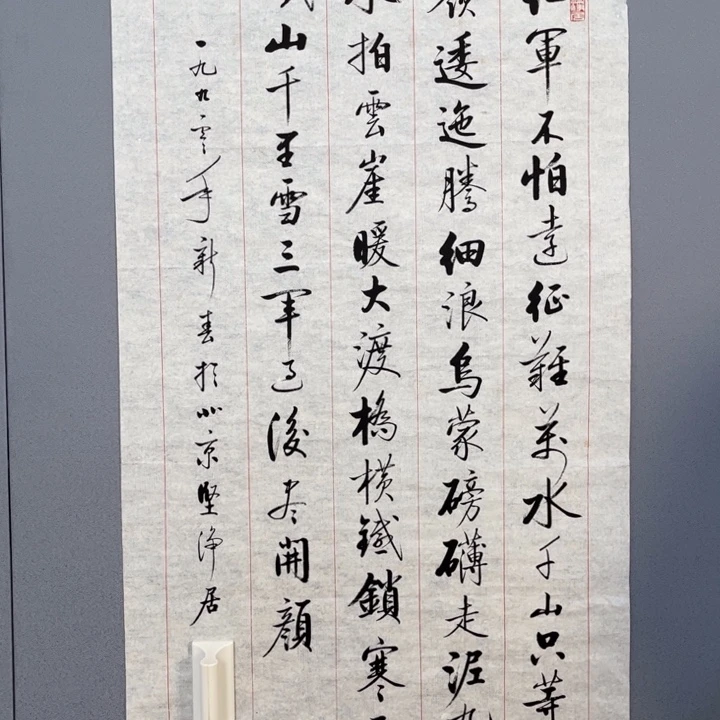 紅軍不怕遠征難萬水千山只等
嶺逶迤騰細浪烏蒙磅礴走泥丸
水拍雲崖暖大渡橋橫鐵鎖寒
山千里雪三軍過後盡開顏
一九九零年新春於北京堅淨居